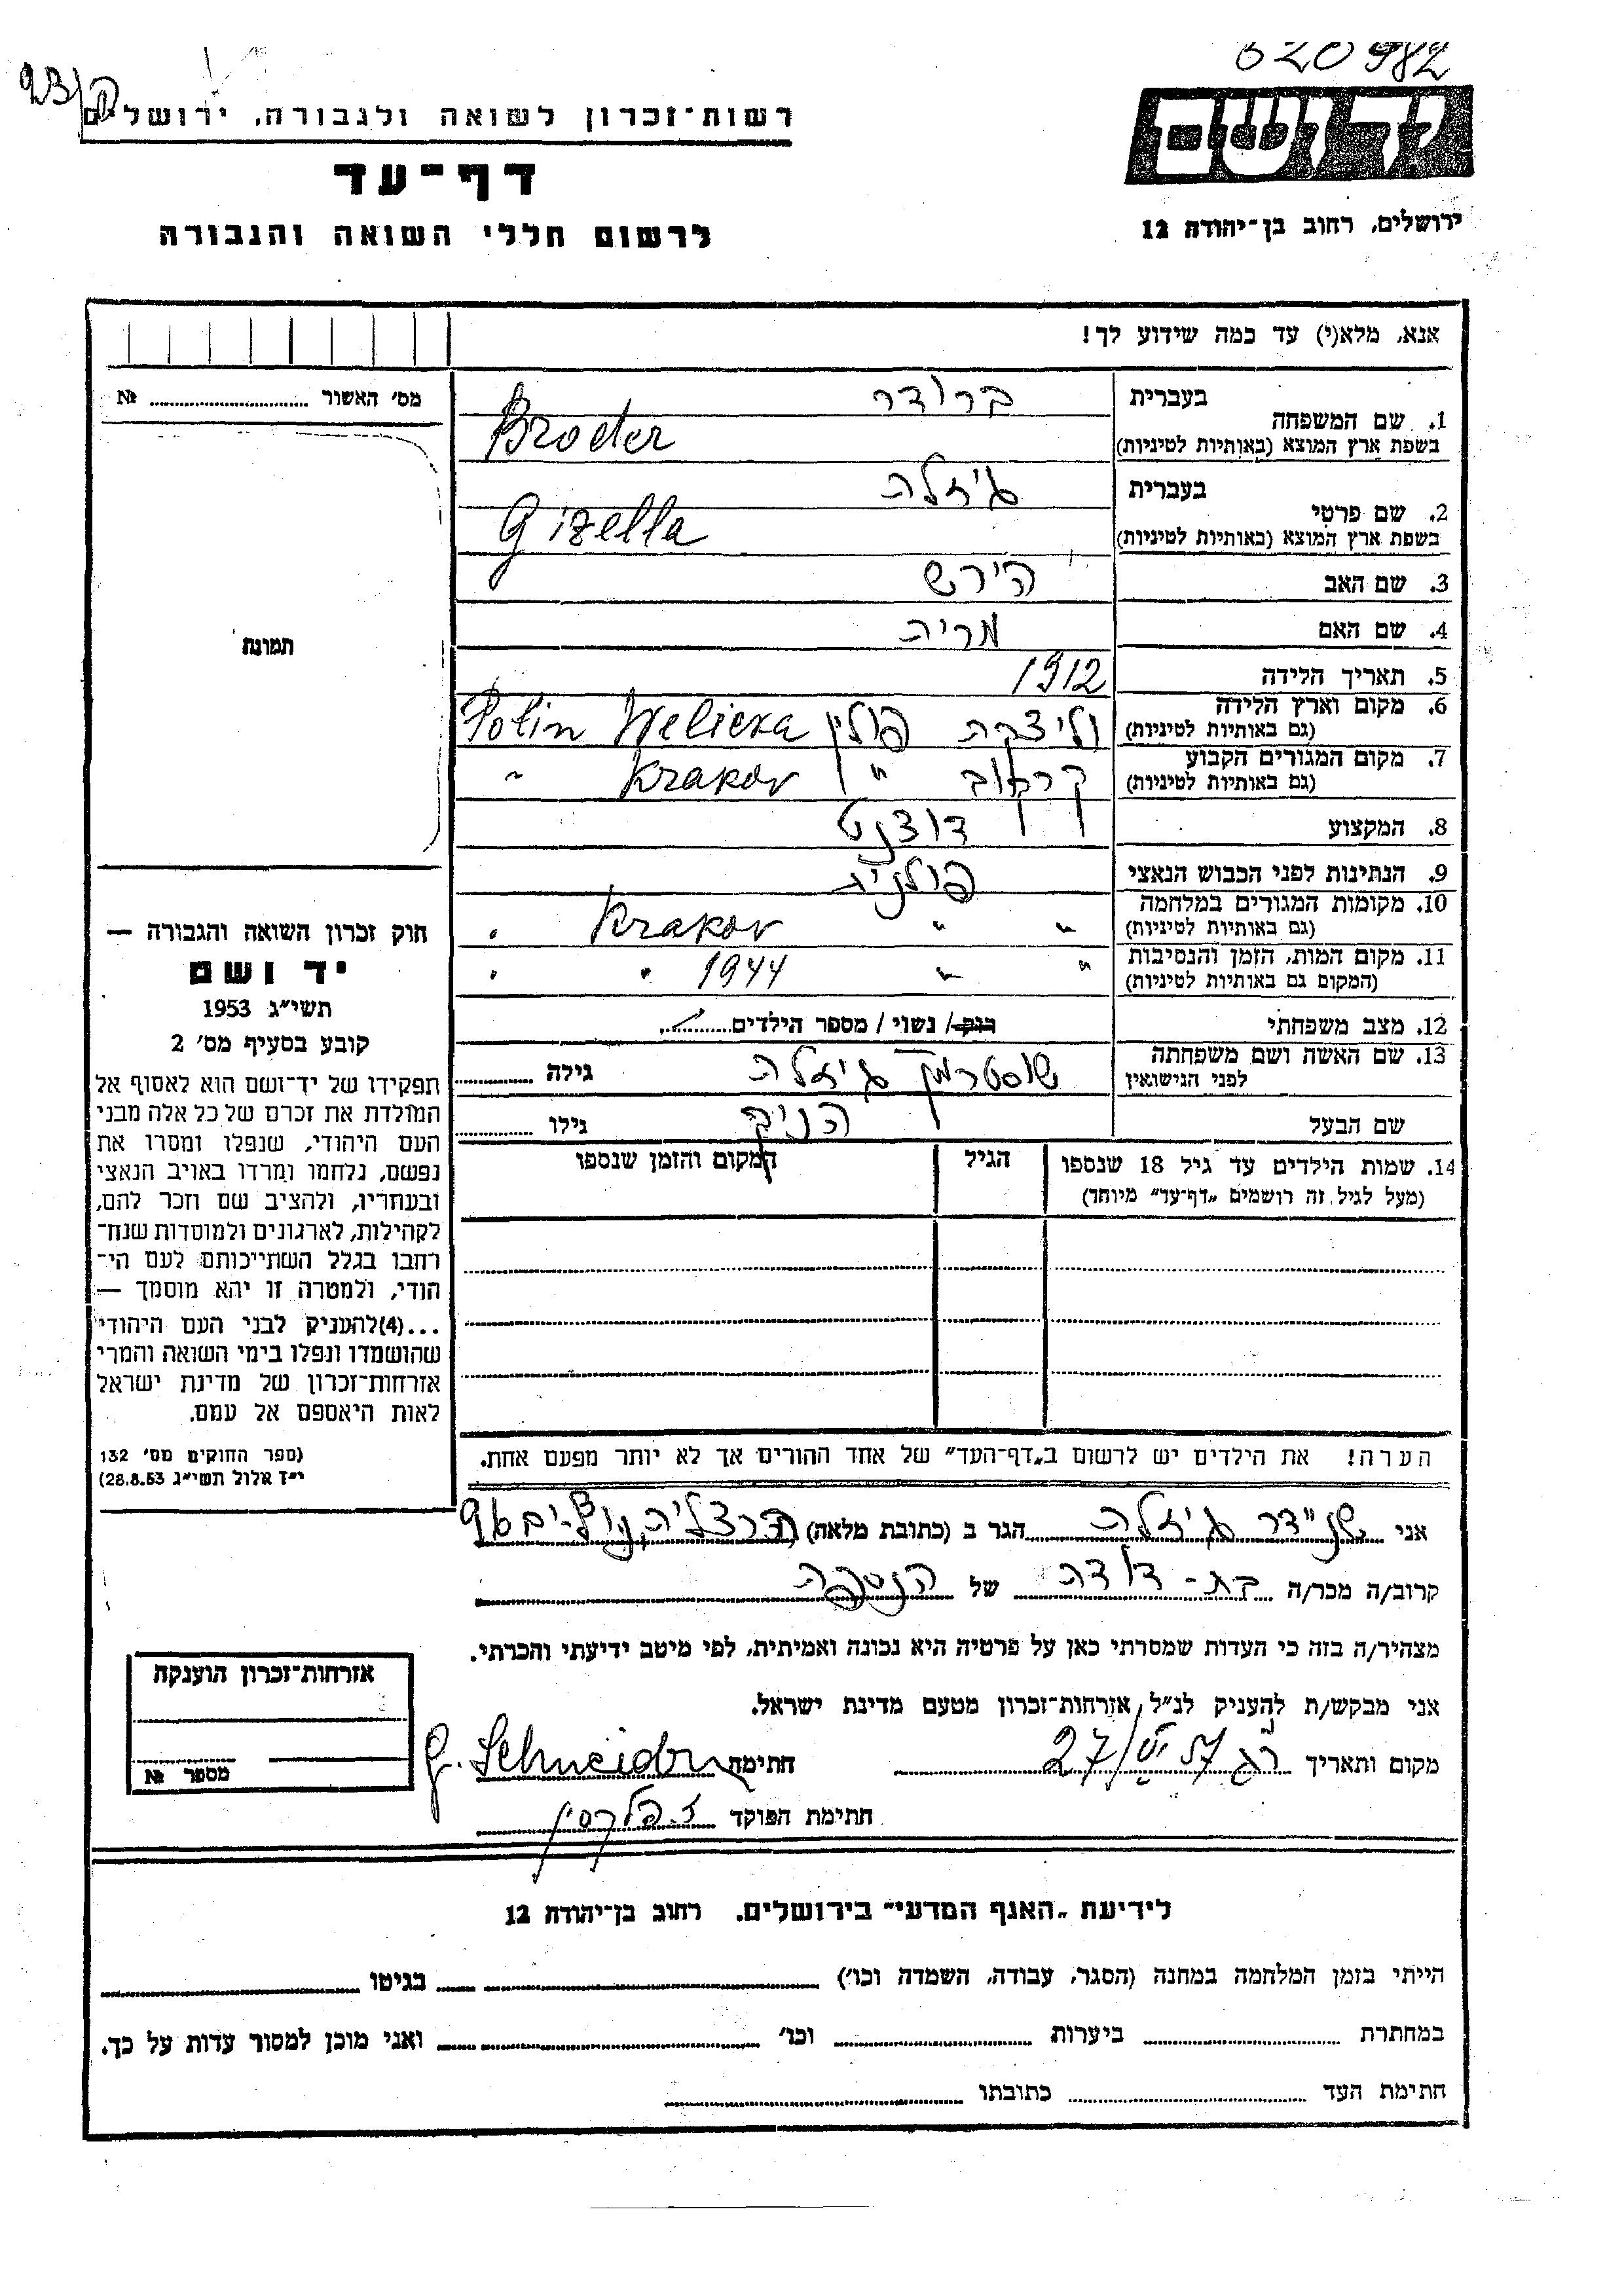 620982
93/ק
רשות־זכרון לשואה ולגבורה, ירושלים
ידושם
ירושלים, רחוב בן־יהודה 12
דף־עד
לרשום חללי השואה והגבורה
אנא, מלא(י) עד כמה שידוע לך!
מס' האשור № 
תמונה
בעברית ברודר
1. שם המשפחה
בשפת ארץ המוצא (באותיות לטיניות) Broder
בעברית גיזלה
2. שם פרטי
בשפת ארץ המוצא (באותיות לטיניות) Gizella
3. שם האב הירש
4. שם האם מריה
5. תאריך הלידה 1912
6. מקום וארץ הלידה
(גם באותיות לטיניות) וליצקה פולין Welicka Polin
7. מקום המגורים הקבוע
(גם באותיות לטיניות) קרקוב " Krakov "
8. המקצוע דוצנט
9. הנתינות לפני הכבוש הנאצי פולניה
10. מקומות המגורים במלחמה
(גם באותיות לטיניות) " " Krakov "
11. מקום המות, הזמן והנסיבות
(המקום גם באותיות לטיניות) " " 1944 " "
12. מצב משפחתי רוק/ נשוי / מספר הילדים
13. שם האשה ושם משפחתה
לפני הנישואין גיזלה גילה
שם הבעל הניק גילו
14. שמות הילדים עד גיל 18 שנספו
(מעל לגיל זה רושמים „דף־עד" מיוחד)
הגיל
המקום והזמן שנספו
הערה! את הילדים יש לרשום ב„דף־העד" של אחד ההורים אך לא יותר מפעם אחת.
חוק זכרון השואה והגבורה —
יד ושם
תשי"ג 1953
קובע בסעיף מס' 2
תפקידו של יד־ושם הוא לאסוף אל
המולדת את זכרם של כל אלה מבני
העם היהודי, שנפלו ומסרו את
נפשם, נלחמו ומרדו באויב הנאצי
ובעוזריו, ולהציב שם וזכר להם,
לקהילות, לארגונים ולמוסדות שנח־
רבו בגלל השתייכותם לעם הי־
הודי, ולמטרה זו יהא מוסמך —
...(4)להעניק לבני העם היהודי
שהושמדו ונפלו בימי השואה והמרי
אזרחות־זכרון של מדינת ישראל
לאות היאספם אל עמם.
(ספר החוקים מס' 132
י"ז אלול תשי"ג 28.8.53)
אני שניידר גיזלה הגר ב (כתובת מלאה) הרצליה 96
קרוב/ה מכר/ה בת-דודה של הנספה
מצהיר/ה בזה כי העדות שמסרתי כאן על פרטיה היא נכונה ואמיתית, לפי מיטב ידיעתי והכרתי.
אני מבקש/ת להעניק לנ"ל אזרחות־זכרון מטעם מדינת ישראל.
מקום ותאריך רג 27/VI 57 חתימה G. Schneider
חתימת הפוקד
אזרחות־זכרון הוענקה
מספר №
לידיעת „האגף המדעי" בירושלים. רחוב בן־יהודה 12
הייתי בזמן המלחמה במחנה (הסגר, עבודה, השמדה וכו') בגיטו
במחתרת ביערות וכו' ואני מוכן למסור עדות על כך.
חתימת העד כתובתו